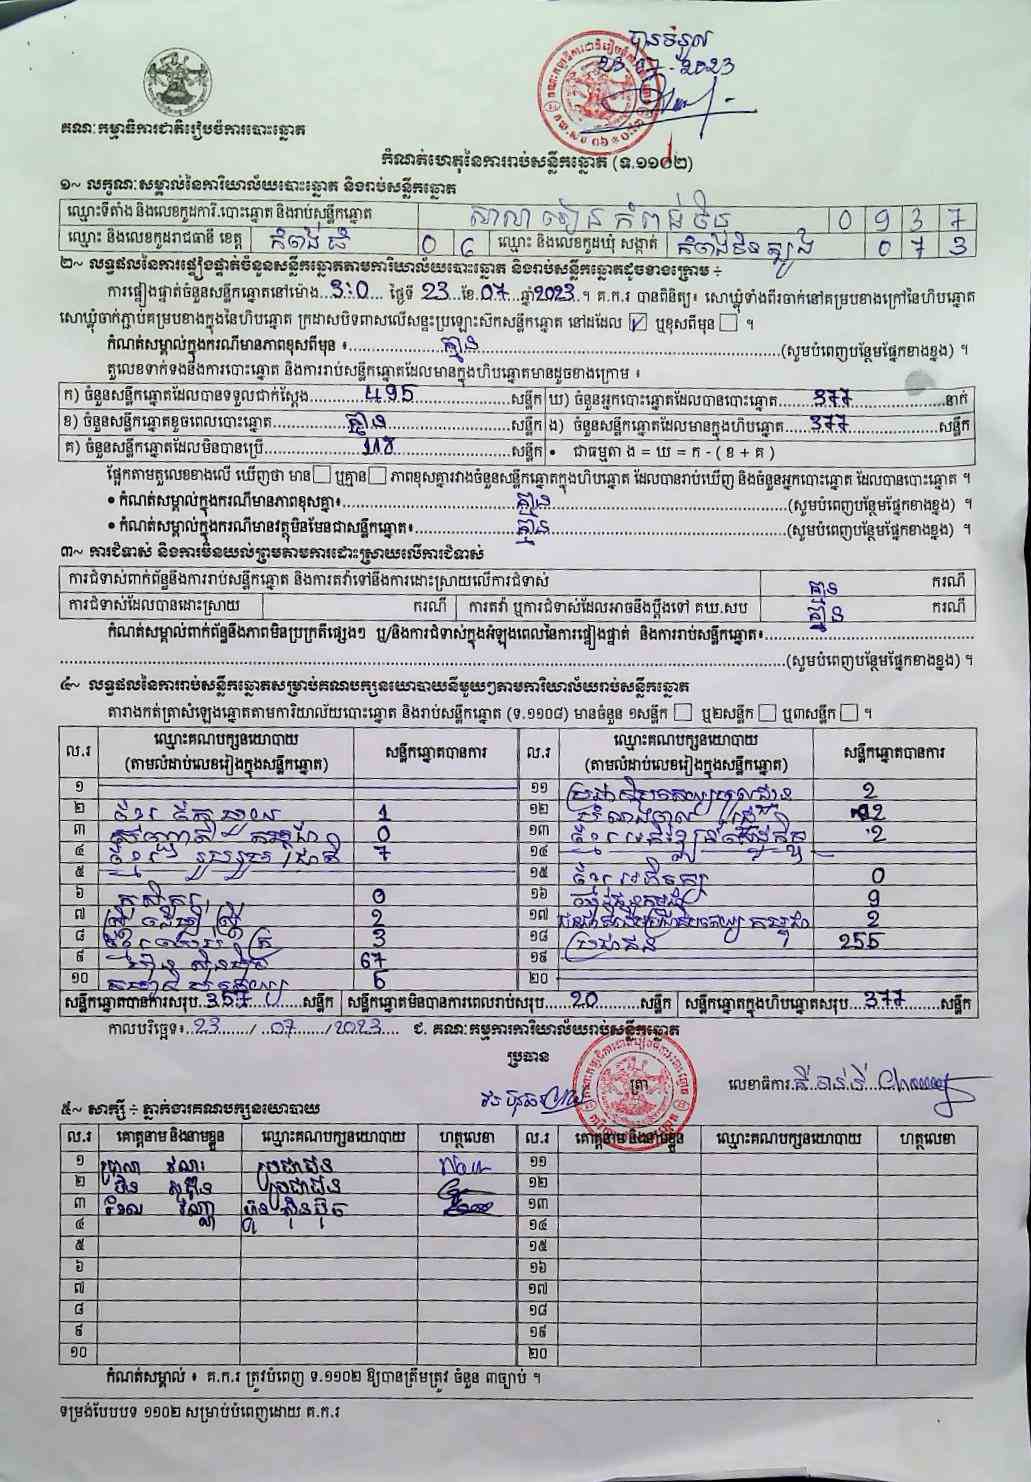 បានទទួល
23-07-2023
គណៈកម្មាធិការជាតិរៀបចំការបោះឆ្នោត
កំណត់ហេតុនៃការរាប់សន្លឹកឆ្នោត (ទ.១១០២)
១~ លក្ខណៈសម្គាល់នៃការិយាល័យបោះឆ្នោត និងរាប់សន្លឹកឆ្នោត
ឈ្មោះទីតាំង និងលេខកូដការិ.បោះឆ្នោត និងរាប់សន្លឹកឆ្នោត សាលារៀន កំពង់ថ្ម 0 9 3 7
ឈ្មោះ និងលេខកូដរាជធានី ខេត្ត កំពង់ធំ 0 6 ឈ្មោះ និងលេខកូដឃុំ សង្កាត់ 0 7 3
២~ លទ្ធផលនៃការផ្ទៀងផ្ទាត់ចំនួនសន្លឹកឆ្នោតតាមការិយាល័យបោះឆ្នោត និងរាប់សន្លឹកឆ្នោតដូចខាងក្រោម ÷
ការផ្ទៀងផ្ទាត់ចំនួនសន្លឹកឆ្នោតនៅម៉ោង...3:0...ថ្ងៃទី 23...ខែ.07...ឆ្នាំ2023.។ គ.ក.រ បានពិនិត្យ៖ សោឃ្លុំទាំងពីរចាក់នៅគម្របខាងក្រៅនៃហិបឆ្នោត
សោឃ្លុំចាក់ភ្ជាប់គម្របខាងក្នុងនៃហិបឆ្នោត ក្រដាសបិទពាសលើសន្ទះប្រឡោះស៊កសន្លឹកឆ្នោត នៅដដែល ☑ ឬខុសពីមុន ☐ ។
កំណត់សម្គាល់ក្នុងករណីមានភាពខុសពីមុន ៖ គ្មាន (សូមបំពេញបន្ថែមផ្នែកខាងខ្នង) ។
តួលេខទាក់ទងនឹងការបោះឆ្នោត និងការរាប់សន្លឹកឆ្នោតដែលមានក្នុងហិបឆ្នោតមានដូចខាងក្រោម ៖
ក) ចំនួនសន្លឹកឆ្នោតដែលបានទទួលជាក់ស្តែង 495 សន្លឹក ឃ) ចំនួនអ្នកបោះឆ្នោតដែលបានបោះឆ្នោត 377 នាក់
ខ) ចំនួនសន្លឹកឆ្នោតខូចពេលបោះឆ្នោត គ្មាន សន្លឹក ង) ចំនួនសន្លឹកឆ្នោតដែលមានក្នុងហិបឆ្នោត 377 សន្លឹក
គ) ចំនួនសន្លឹកឆ្នោតដែលមិនបានប្រើ 118 សន្លឹក • ជាធម្មតា ង = ឃ = ក - ( ខ + គ )
ផ្អែកតាមតួលេខខាងលើ ឃើញថា មាន ☐ ឬគ្មាន ☐ ភាពខុសគ្នារវាងចំនួនសន្លឹកឆ្នោតក្នុងហិបឆ្នោត ដែលបានរាប់ឃើញ និងចំនួនអ្នកបោះឆ្នោត ដែលបានបោះឆ្នោត ។
• កំណត់សម្គាល់ក្នុងករណីមានភាពខុសគ្នា៖ គ្មាន (សូមបំពេញបន្ថែមផ្នែកខាងខ្នង) ។
• កំណត់សម្គាល់ក្នុងករណីមានវត្ថុមិនមែនជាសន្លឹកឆ្នោត៖ គ្មាន (សូមបំពេញបន្ថែមផ្នែកខាងខ្នង) ។
៣~ ការជំទាស់ និងការមិនយល់ព្រមតាមការដោះស្រាយលើការជំទាស់
ការជំទាស់ពាក់ព័ន្ធនឹងការរាប់សន្លឹកឆ្នោត និងការតវ៉ាទៅនឹងការដោះស្រាយលើការជំទាស់ គ្មាន ករណី
ការជំទាស់ដែលបានដោះស្រាយ ករណី ការតវ៉ា ឬការជំទាស់ដែលអាចនឹងប្តឹងទៅ គឃ.សប គ្មាន ករណី
កំណត់សម្គាល់ពាក់ព័ន្ធនឹងភាពមិនប្រក្រតីផ្សេងៗ ឬ/និងការជំទាស់ក្នុងអំឡុងពេលនៃការផ្ទៀងផ្ទាត់ និងការរាប់សន្លឹកឆ្នោត៖
(សូមបំពេញបន្ថែមផ្នែកខាងខ្នង) ។
៤~ លទ្ធផលនៃការរាប់សន្លឹកឆ្នោតសម្រាប់គណបក្សនយោបាយនីមួយៗតាមការិយាល័យរាប់សន្លឹកឆ្នោត
តារាងកត់ត្រាសំឡេងឆ្នោតតាមការិយាល័យបោះឆ្នោត និងរាប់សន្លឹកឆ្នោត (ទ.១១០៨) មានចំនួន ១សន្លឹក ☐ ឬ២សន្លឹក ☐ ឬ៣សន្លឹក ☐ ។
ល.រ ឈ្មោះគណបក្សនយោបាយ សន្លឹកឆ្នោតបានការ ល.រ ឈ្មោះគណបក្សនយោបាយ សន្លឹកឆ្នោតបានការ
(តាមលំដាប់លេខរៀងក្នុងសន្លឹកឆ្នោត) (តាមលំដាប់លេខរៀងក្នុងសន្លឹកឆ្នោត)
១ ១១ 2
២ 1 ១២ 12
៣ 0 ១៣ 2
៤ ខ្មែររួបរួមជាតិ 7 ១៤
៥ ១៥ 0
៦ កសិករ 0 ១៦ 9
៧ ស្ត្រីដើម្បីស្ត្រី 2 ១៧ 2
៨ 3 ១៨ ប្រជាជន 255
៩ ហ៊្វុនស៊ិនប៉ិច 67 ១៩
១០ 6 ២០
សន្លឹកឆ្នោតបានការសរុប 357 សន្លឹក សន្លឹកឆ្នោតមិនបានការពេលរាប់សរុប 20 សន្លឹក សន្លឹកឆ្នោតក្នុងហិបឆ្នោតសរុប 377 សន្លឹក
កាលបរិច្ឆេទ៖ 23/07/2023 ជ. គណៈកម្មការការិយាល័យរាប់សន្លឹកឆ្នោត
ប្រធាន
ត្រា លេខាធិការ
៥~ សាក្សី ÷ ភ្នាក់ងារគណបក្សនយោបាយ
ល.រ គោត្តនាម និងនាមខ្លួន ឈ្មោះគណបក្សនយោបាយ ហត្ថលេខា ល.រ គោត្តនាម និងនាមខ្លួន ឈ្មោះគណបក្សនយោបាយ ហត្ថលេខា
១ ប្រជាជន ១១
២ ប្រជាជន ១២
៣ ហ៊្វុនស៊ិនប៉ិច ១៣
៤ ១៤
៥ ១៥
៦ ១៦
៧ ១៧
៨ ១៨
៩ ១៩
១០ ២០
កំណត់សម្គាល់ ៖ គ.ក.រ ត្រូវបំពេញ ទ.១១០២ ឱ្យបានត្រឹមត្រូវ ចំនួន ៣ច្បាប់ ។
ទម្រង់បែបបទ ១១០២ សម្រាប់បំពេញដោយ គ.ក.រ